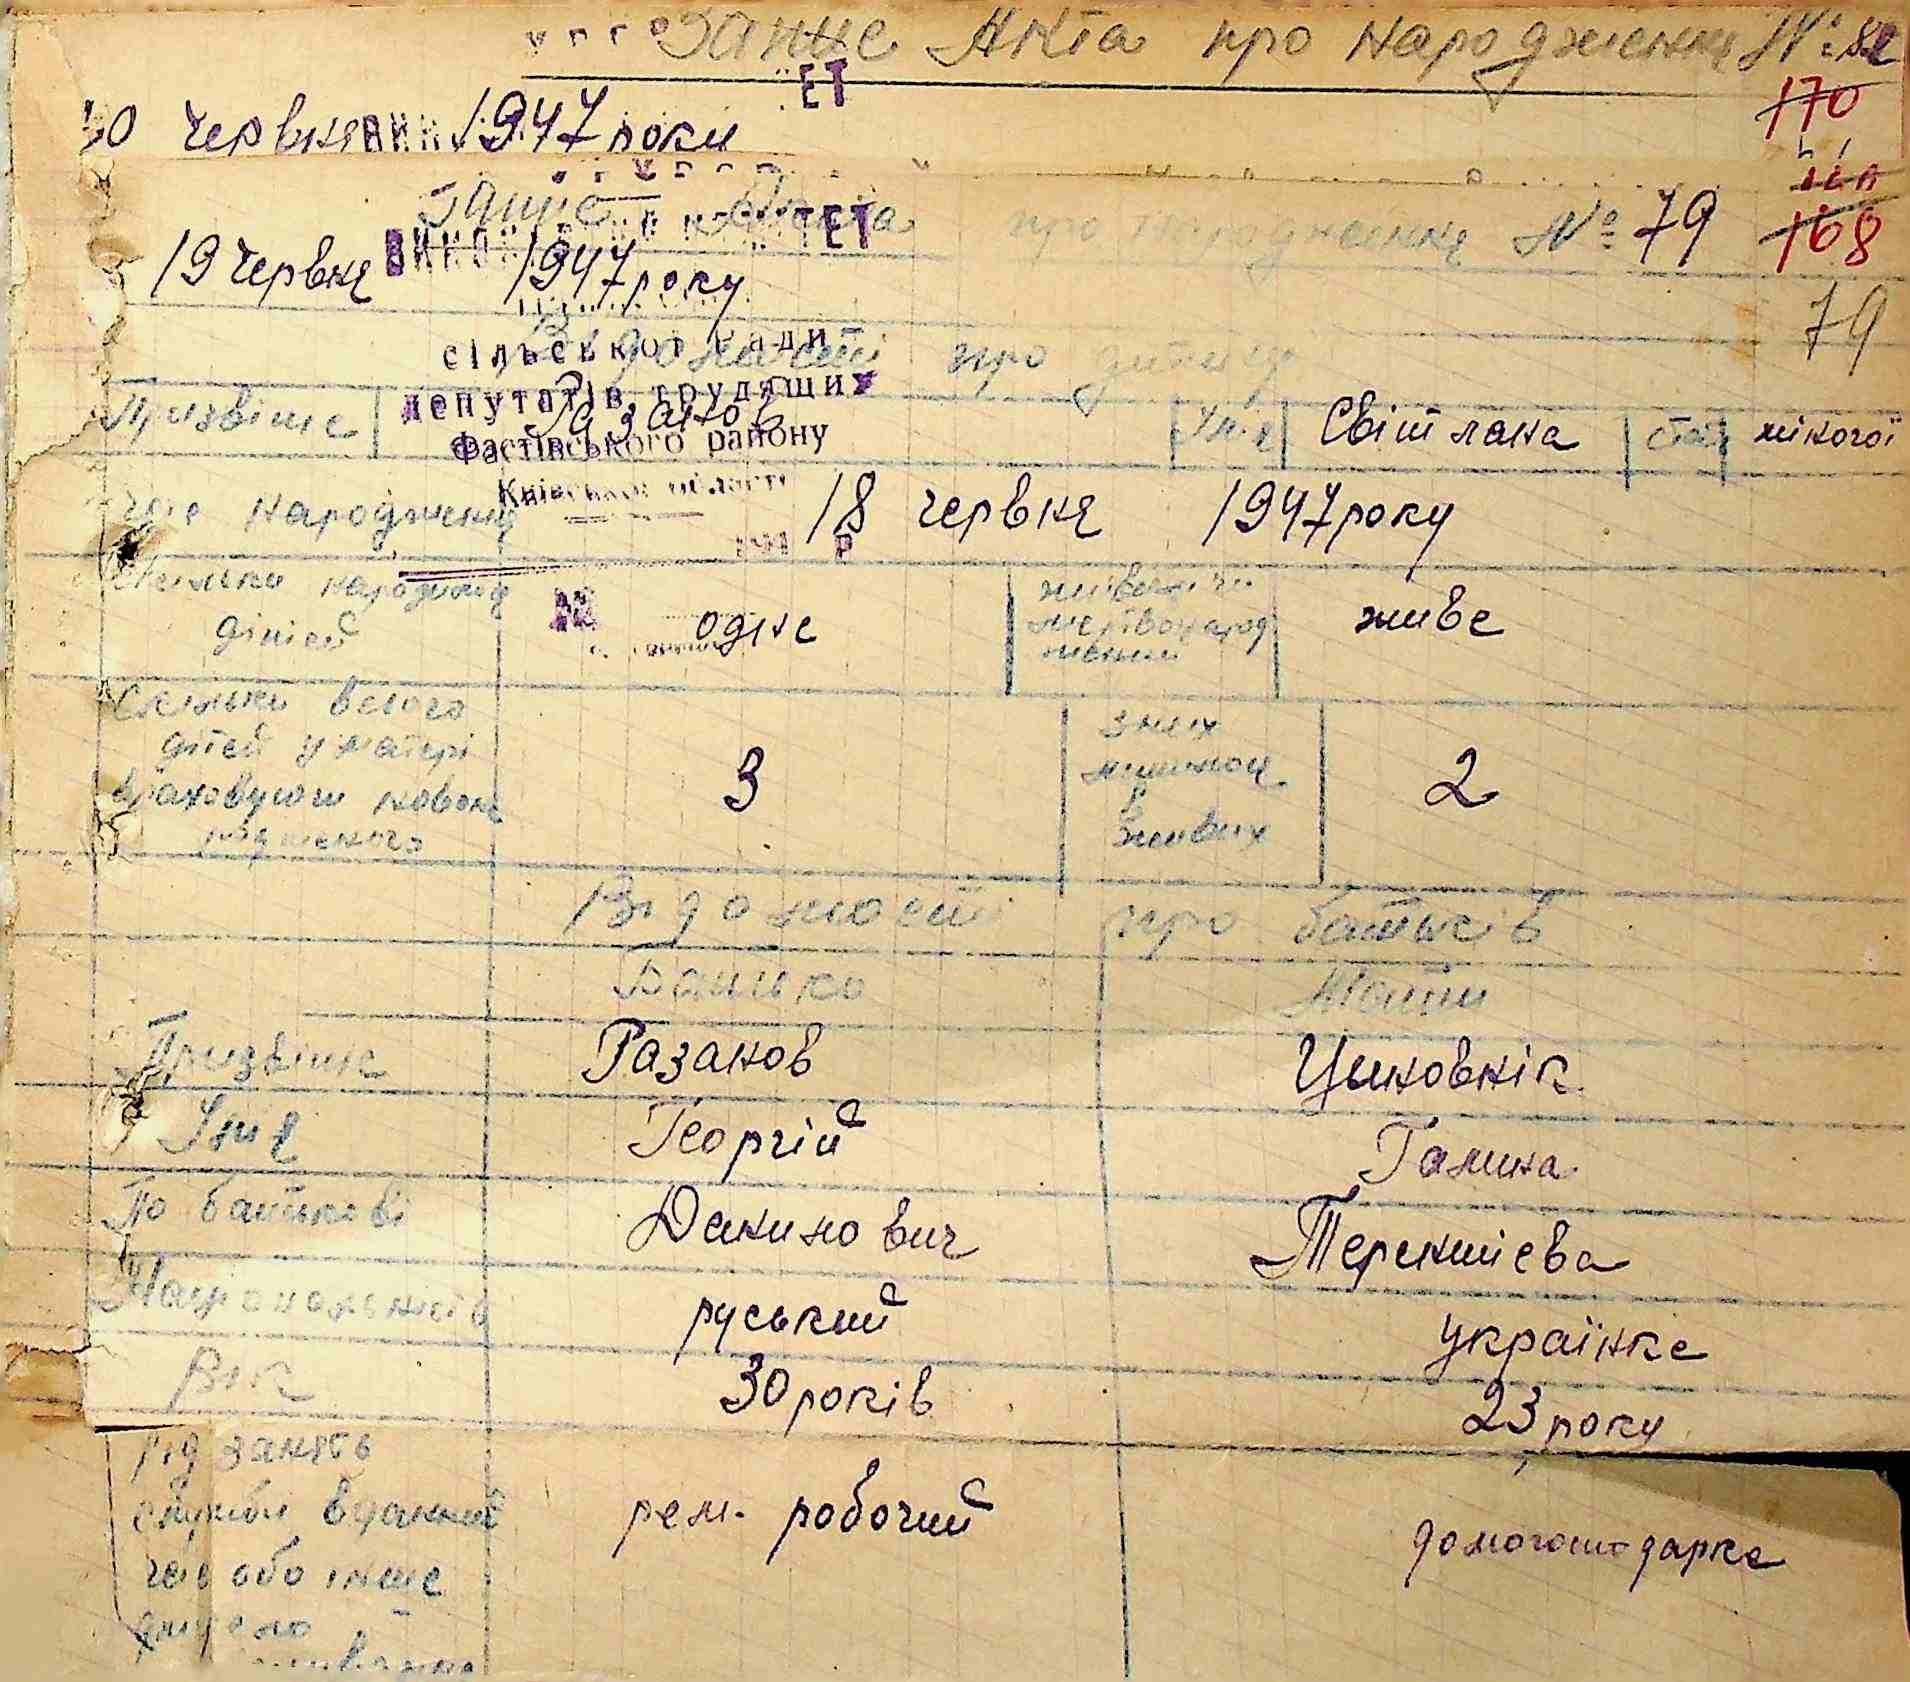 Запис Акта про народження № 82
170
30 червня 1947 року
Запис Акта про народження № 79
168
19 червня 1947 року
79
ВИКОНАВЧИЙ КОМІТЕТ
сільської Ради
депутатів трудящих
Фастівського району
Київської області
Відомості про дитину
Прізвіще Разанов Ім'я Світлана стать жіночої
Час народження 18 червня 1947 року
Скільки народилося дітей одне живих чи мертвонародженими живе
Скільки всього дітей у матері враховуючи новонародженого 3 з них лишилося в живих 2
Відомості про батьків
Батько Мати
Прізвіще Разанов Циновнік
Ім'я Георгій Галина
По батькові Данилович Терентієва
Національність руський українка
Вік 30 років 23 року
Рід занять рем. робочий домогосподарка
служби в даний
час або інше
джерело